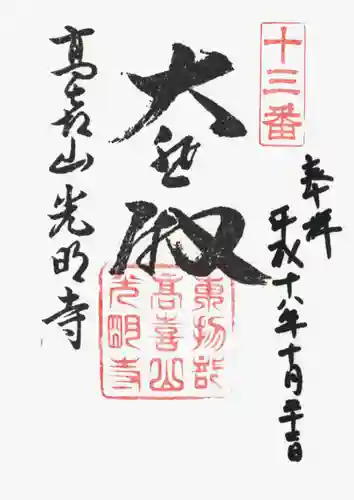 十三番
奉拝
平成十八年十月二十二日
大悲殿
高喜山光明寺
東物部
高喜山
光明寺